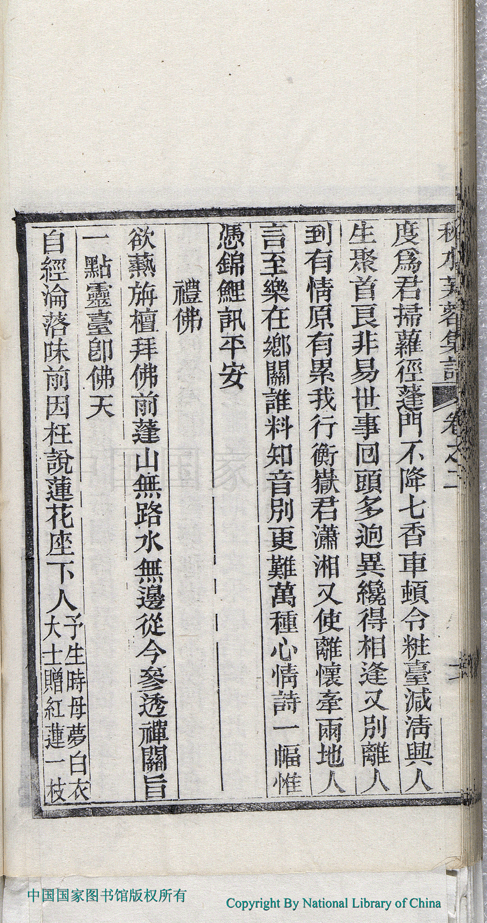 秋水芙蓉集詩 卷之二
度爲君掃蘿徑蓬門不降七香車頓令粧臺減淸興人
生聚首良非易世事囘頭多逈異纔得相逢又別離人
到有情原有累我行衡嶽君瀟湘又使離懷牽兩地人
言至樂在鄕關誰料知音別更難萬種心情詩一幅惟
憑錦鯉訊平安
禮佛
欲爇旃檀拜佛前蓬山無路水無邊從今參透禪關旨
一點靈臺卽佛天
自經淪落昧前因枉說蓮花座下人予生時母夢白衣
大士贈紅蓮一枝
中国国家图书馆版权所有
Copyright By National Library of China